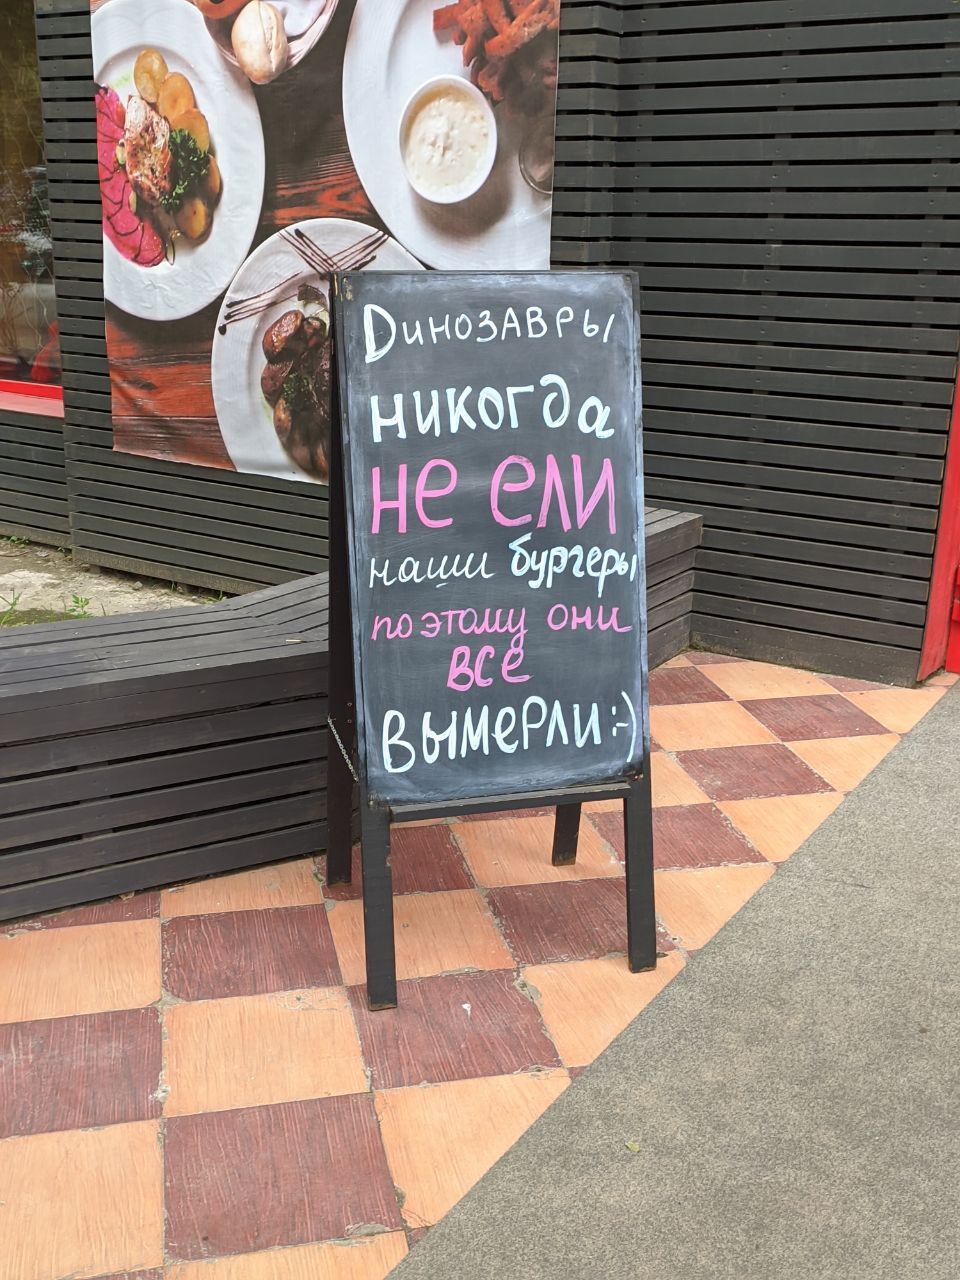 Динозавры
никогда
не ели
наши бургеры
поэтому они
все
вымерли:-)